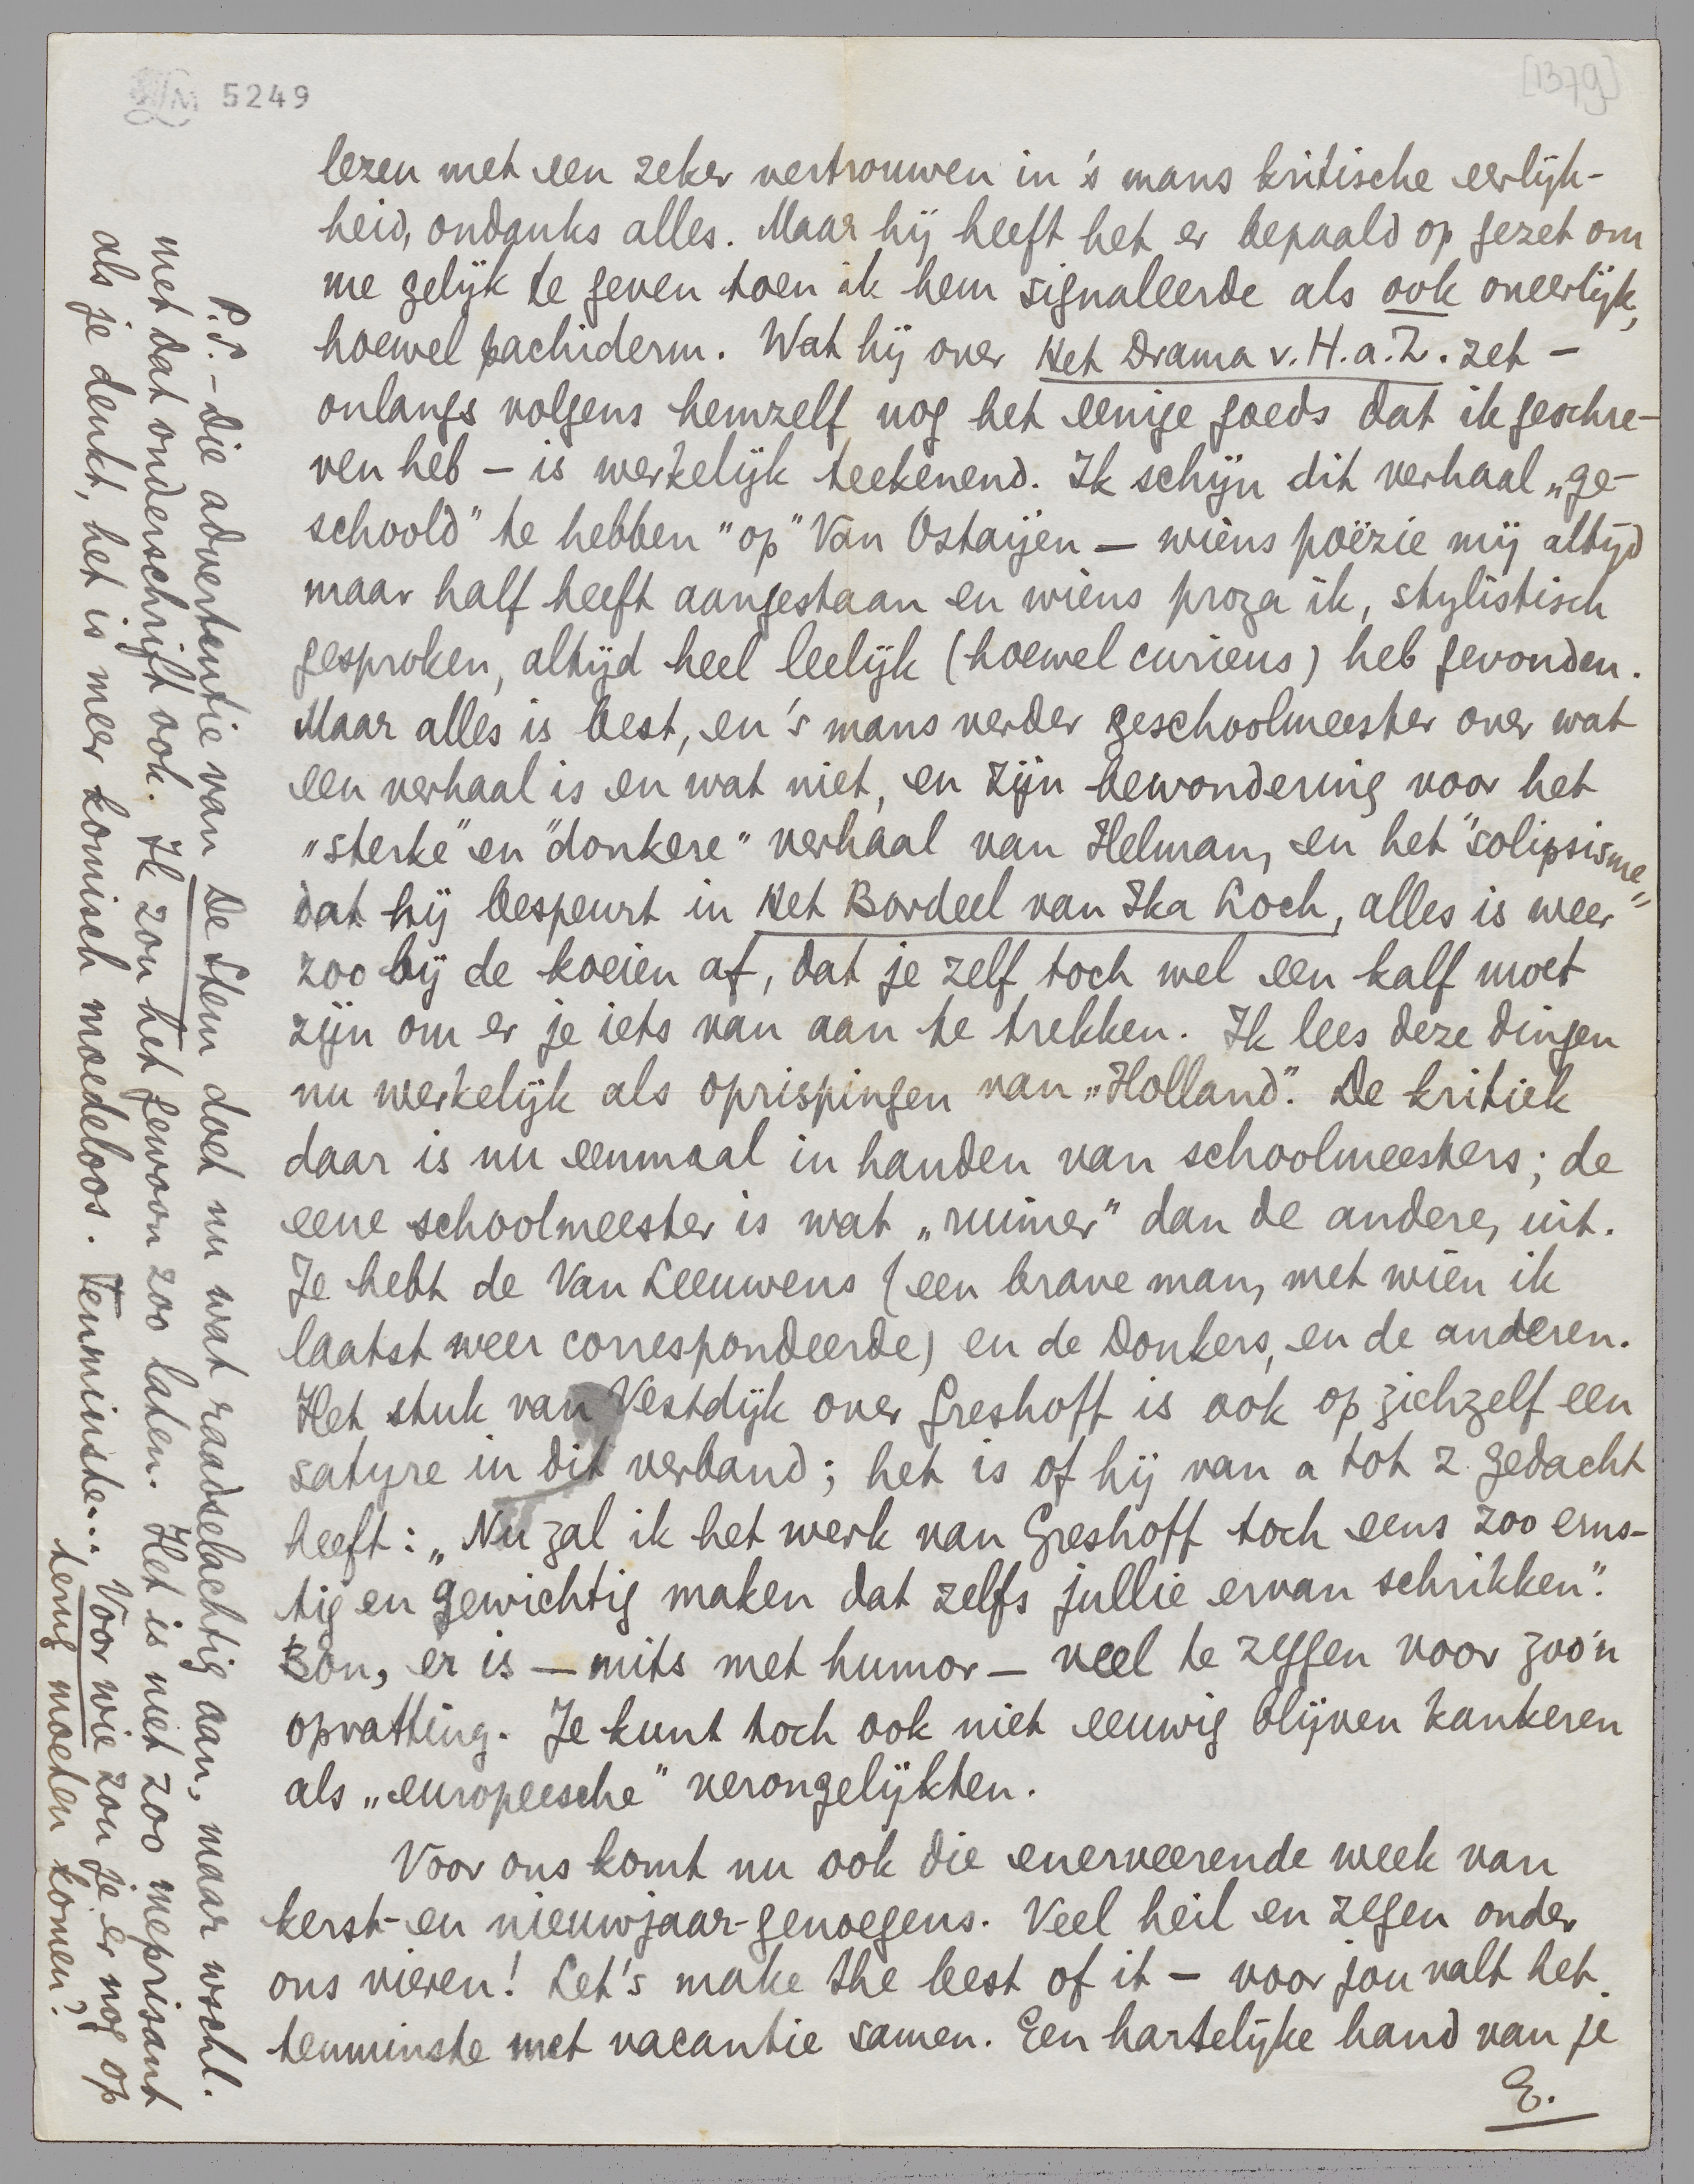 5249
[1379]
lezen met een zeker vertrouwen in 's mans kritische eerlijk-
heid, ondanks alles. Maar hij heeft het er bepaald op gezet om
me gelijk te geven toen ik hem signaleerde als ook oneerlijk,
hoewel pachiderm. Wat hij over Het Drama v. H.a.Z. zet –
onlangs volgens hemzelf nog het eenige goeds dat ik geschre-
ven heb – is werkelijk teekenend. Ik schijn dit verhaal „ge-
schoold" te hebben "op" Van Ostaijen – wiens poëzie mij altijd
maar half heeft aangestaan en wiens proza ik, stylistisch
gesproken, altijd heel leelijk (hoewel curieus) heb gevonden.
Maar alles is best, en 's mans verder geschoolmeester over wat
een verhaal is en wat niet, en zijn bewondering voor het
"sterke" en "donkere" verhaal van Helman, en het "solipsisme"
dat hij bespeurt in Het Bordeel van Ika Loch, alles is weer
zoo bij de koeien af, dat je zelf toch wel een kalf moet
zijn om er je iets van aan te trekken. Ik lees deze dingen
nu werkelijk als oprispingen van „Holland". De kritiek
daar is nu eenmaal in handen van schoolmeesters; de
eene schoolmeester is wat „ruimer" dan de andere, uit.
Je hebt de Van Leeuwens (een brave man, met wien ik
laatst weer correspondeerde) en de Donkers, en de anderen.
Het stuk van Vestdijk over Greshoff is ook op zichzelf een
satyre in dit verband; het is of hij van a tot z gedacht
heeft: „Nu zal ik het werk van Greshoff toch eens zoo erns-
tig en gewichtig maken dat zelfs jullie ervan schrikken".
Bon, er is – mits met humor – veel te zeggen voor zoo'n
opvatting. Je kunt toch ook niet eeuwig blijven kankeren
als „europeesche" verongelijkten.
Voor ons komt nu ook die enerveerende week van
kerst- en nieuwjaar-genoegens. Veel heil en zegen onder
ons vieren! Let's make the best of it – voor jou valt het
tenminste met vacantie samen. Een hartelijke hand van je
E.
P.S. – Die advertentie van De Stem doet nu wat raadselachtig aan, maar wschl.
met dat onderschrift ook. Ik zou het gewoon zoo laten. Het is niet zoo meprisant
als je denkt, het is meer komisch moedeloos. Tenminste... Voor wie zou je er nog op
terug moeten komen?